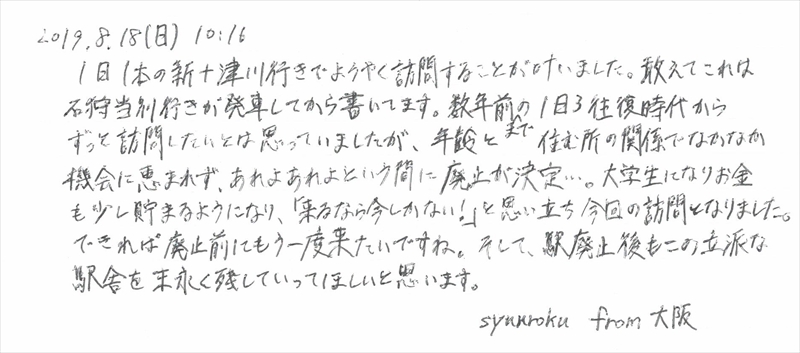 2019.8.18(日) 10:16
1日1本の新十津川行きでようやく訪問することができいました。敢えてこれは
石狩当別行きが発車してから書いてます。数年前の1日3往復時代から
ずっと訪問したいとは思っていましたが、年齢とまで住む所の関係でなかなか
機会に恵まれず、あれよあれよという間に廃止が決定…。大学生になりお金
も少し貯まるようになり、「来るなら今しかない!」と思い立ち今回の訪問となりました。
できれば廃止前にもう一度来たいですね。そして、駅廃止後もこの立派な
駅舎を末永く残していってほしいと思います。
syunroku from 大阪